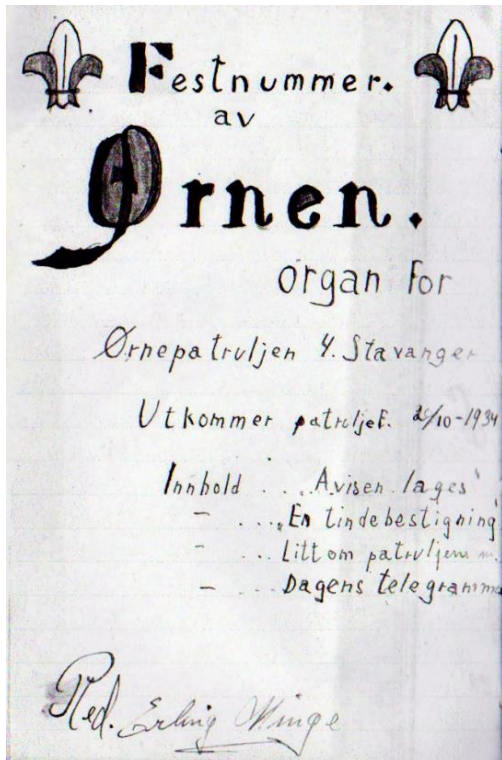 Festnummer.
av
Ørnen.
organ for
Ørnepatruljen 4. Stavanger
Utkommer patruljef. /10-1934
Innhold ... „Avisen lages"
— ... „En tindebestigning
— ... Litt om patruljens
— ... Dagens telegramme
Red. Erling Winge